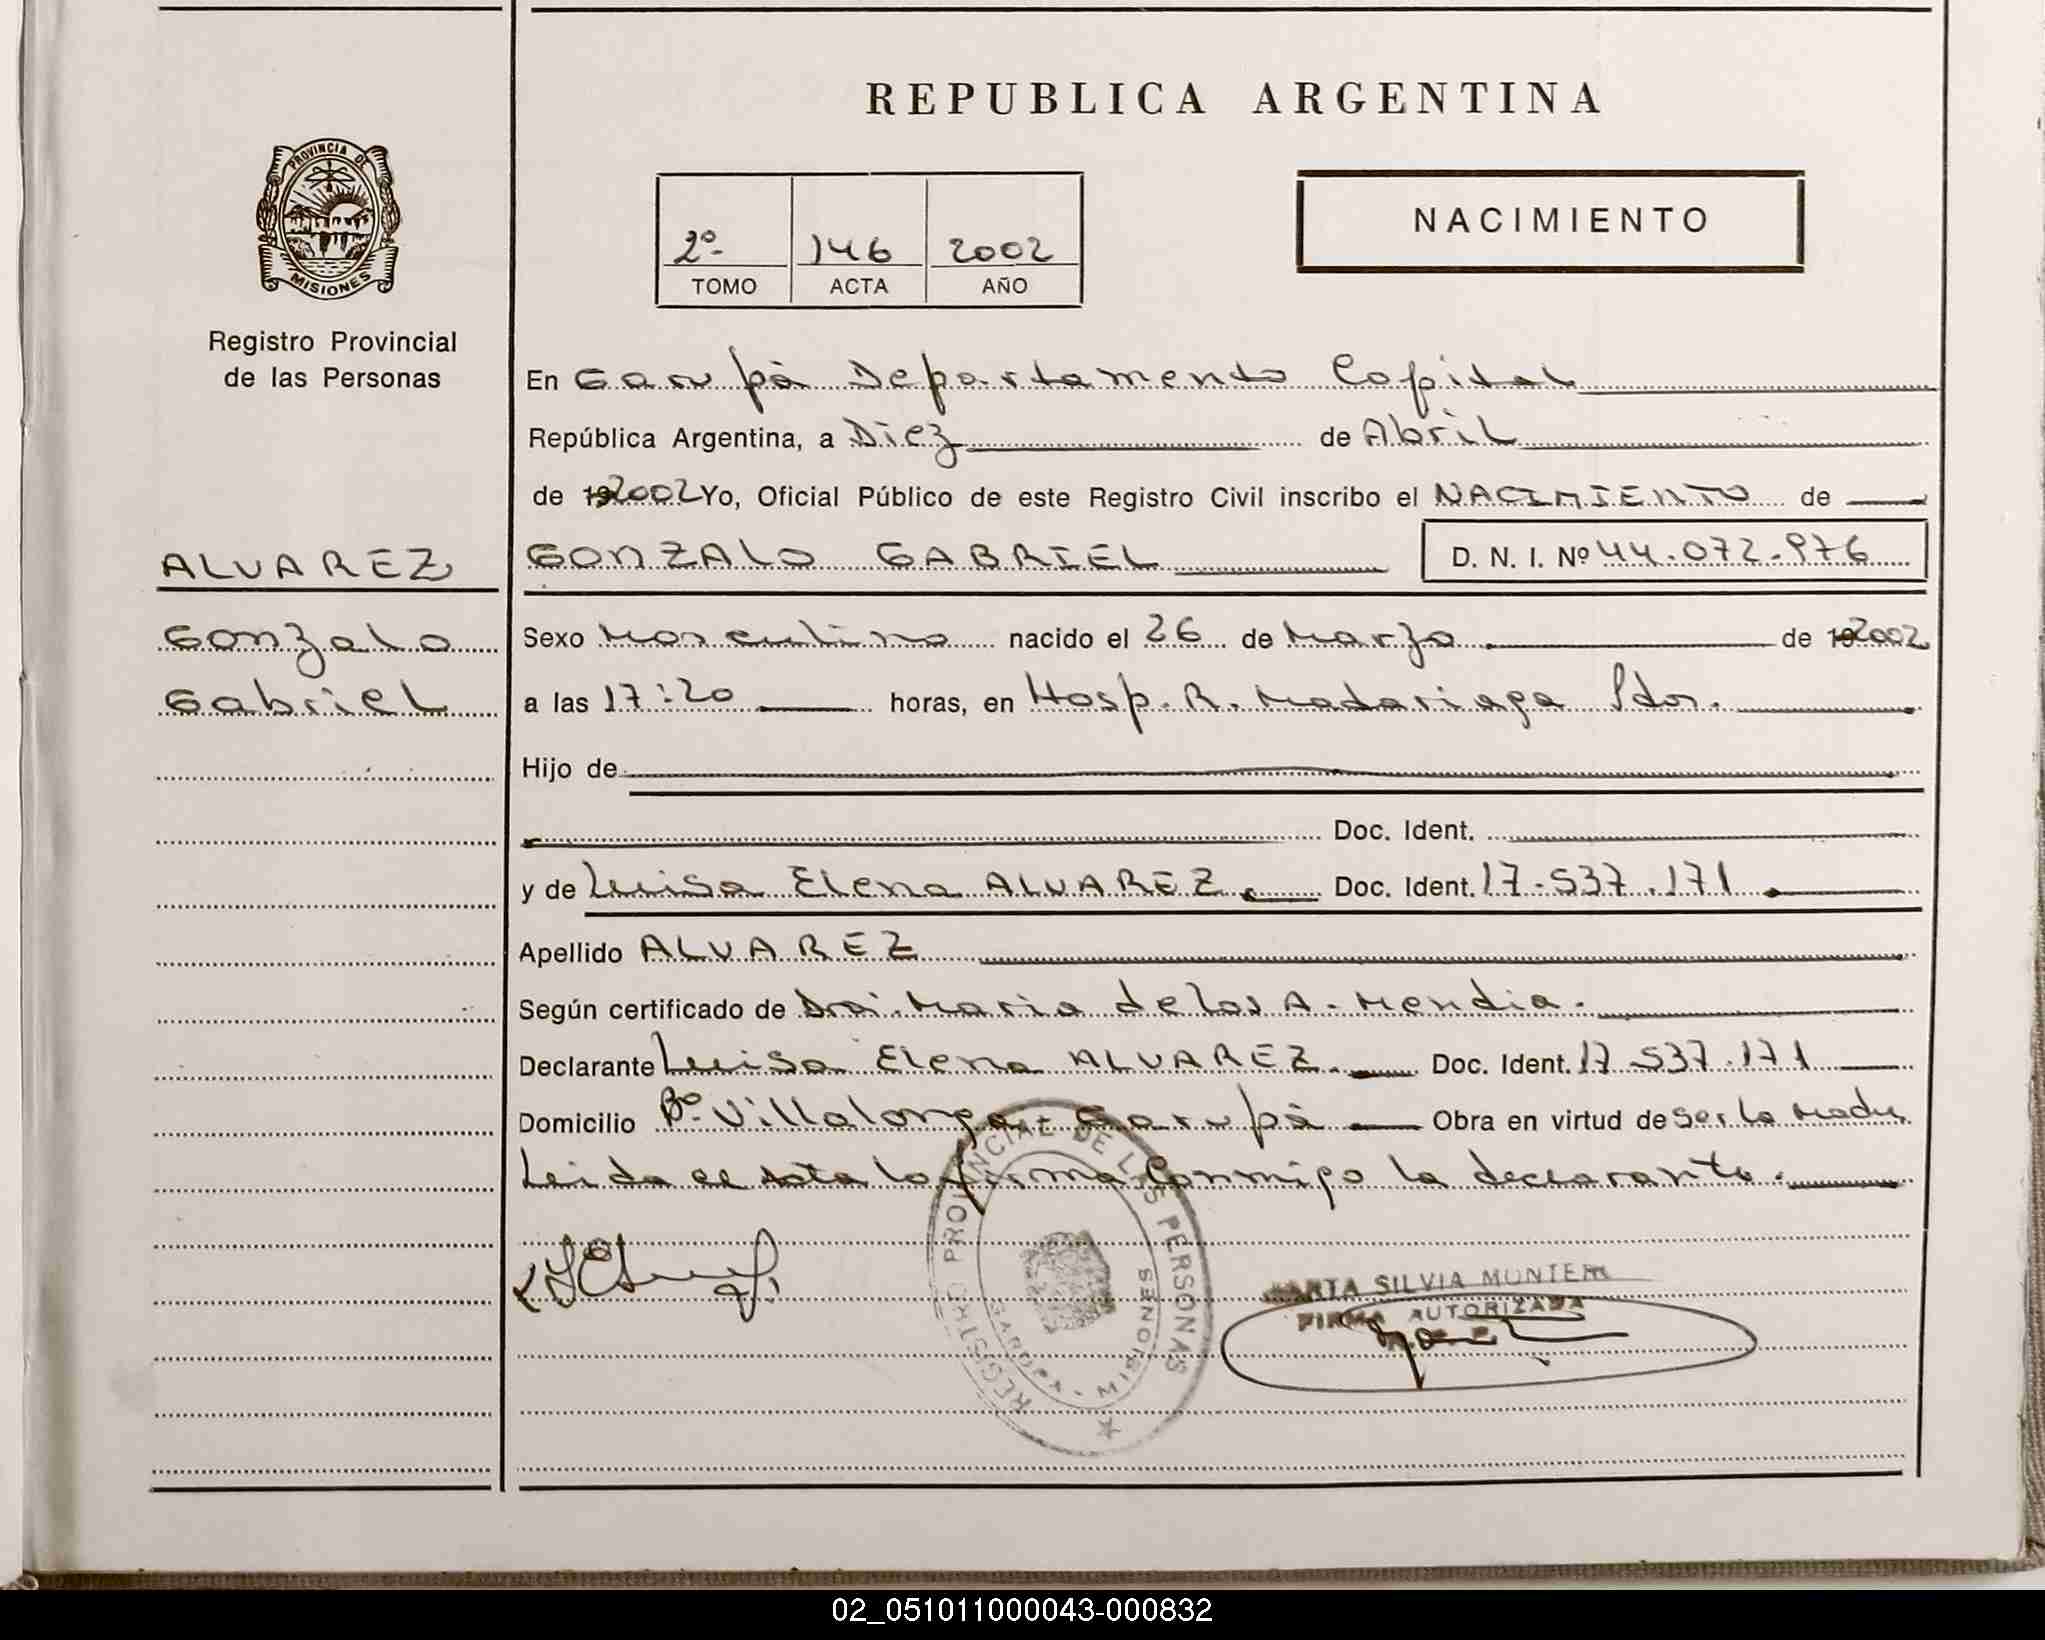 REPUBLICA ARGENTINA
PROVINCIA DE
MISIONES
Registro Provincial
de las Personas
2º 146 2002
TOMO ACTA AÑO
NACIMIENTO
En Garupá Departamento Capital
República Argentina, a Diez de Abril
de 192002 Yo, Oficial Público de este Registro Civil inscribo el NACIMIENTO de
ALVAREZ
GONZALO GABRIEL D. N. I. Nº 44.072.976
Gonzalo
Gabriel
Sexo Masculino nacido el 26 de Marzo de 192002
a las 17:20 horas, en Hosp. R. Madariaga Pdas.
Hijo de
Doc. Ident.
y de Luisa Elena ALVAREZ. Doc. Ident. 17.537.171
Apellido ALVAREZ
Según certificado de Dra. Maria de los A. Mendia.
Declarante Luisa Elena ALVAREZ. Doc. Ident. 17.537.171
Domicilio Bº Villalonga - Garupá Obra en virtud de ser la Madre
Leida el acta la firma conmigo la declarante.
REGISTRO PROVINCIAL DE LAS PERSONAS
GARUPA - MISIONES
SILVIA
FIRMA AUTORIZADA
02_051011000043-000832